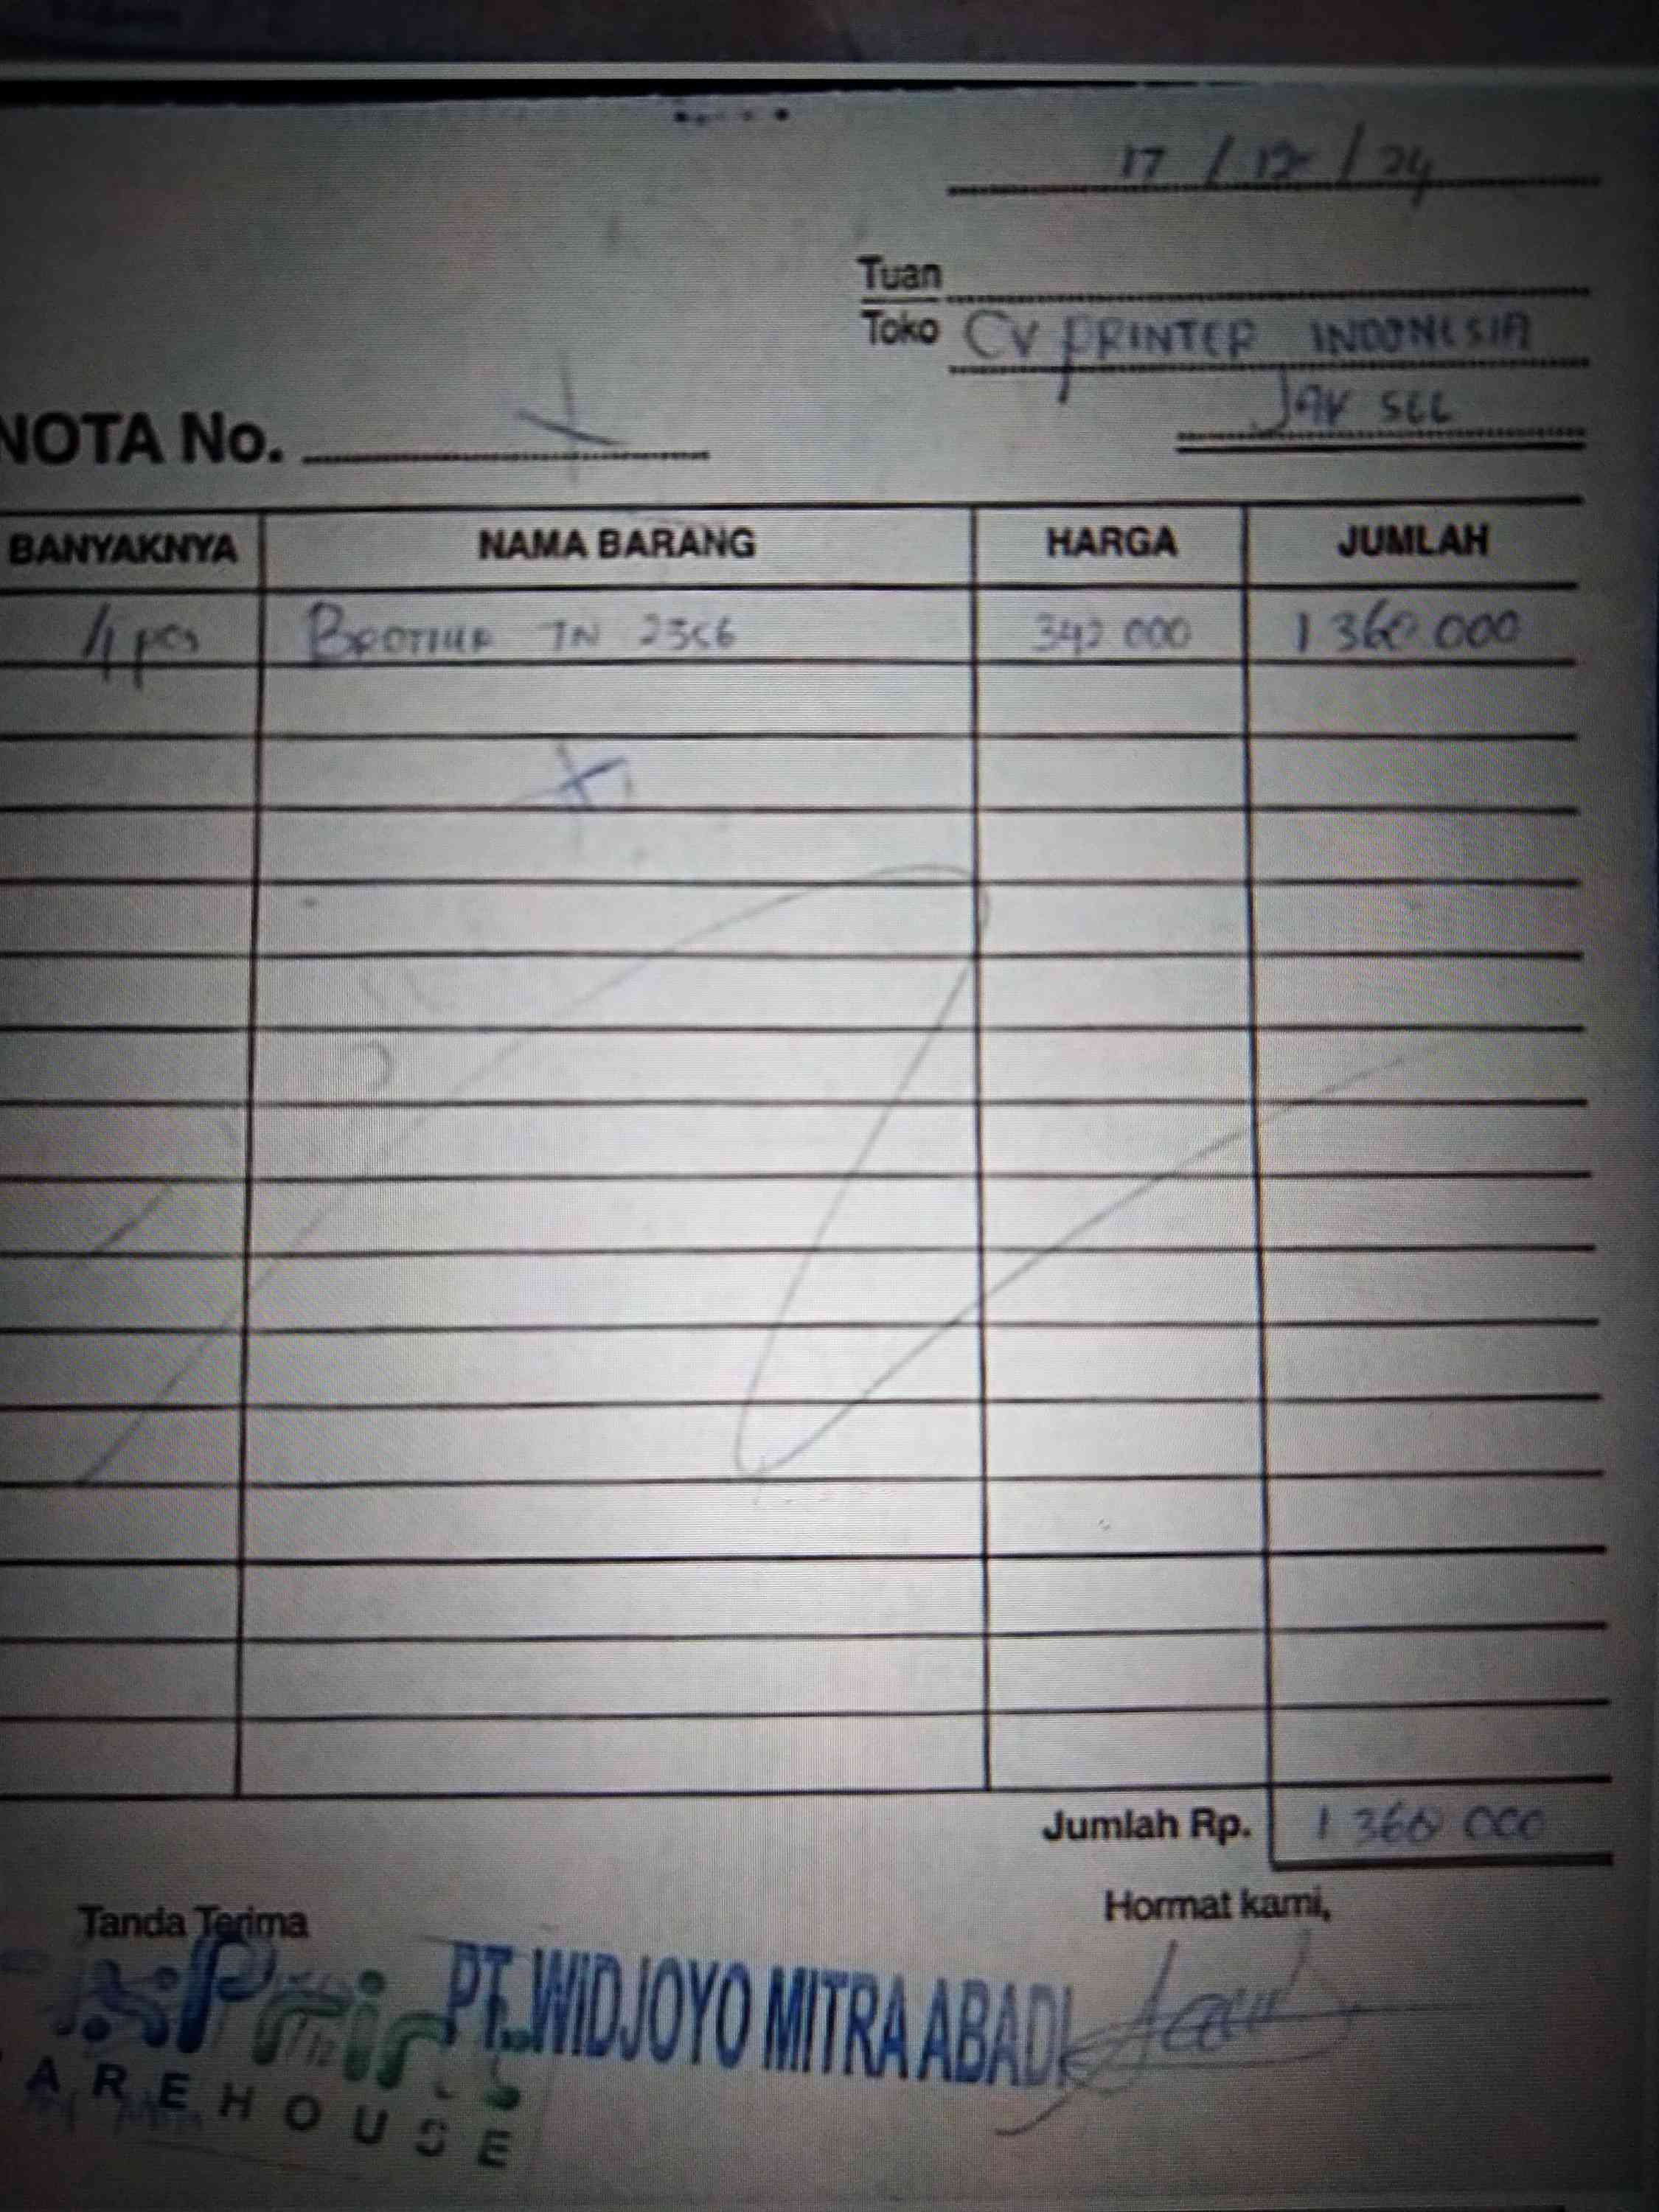 17 / 12 / 24
Tuan
Toko CV PRINTER INDONESIA
JAK SEL
NOTA No.
BANYAKNYA NAMA BARANG HARGA JUMLAH
4 pcs BROTHER TN 2356 342 000 1 360 000
Jumlah Rp. 1 360 000
Tanda Terima Hormat kami,
PT. WIDJOYO MITRA ABADI
AREHOUSE